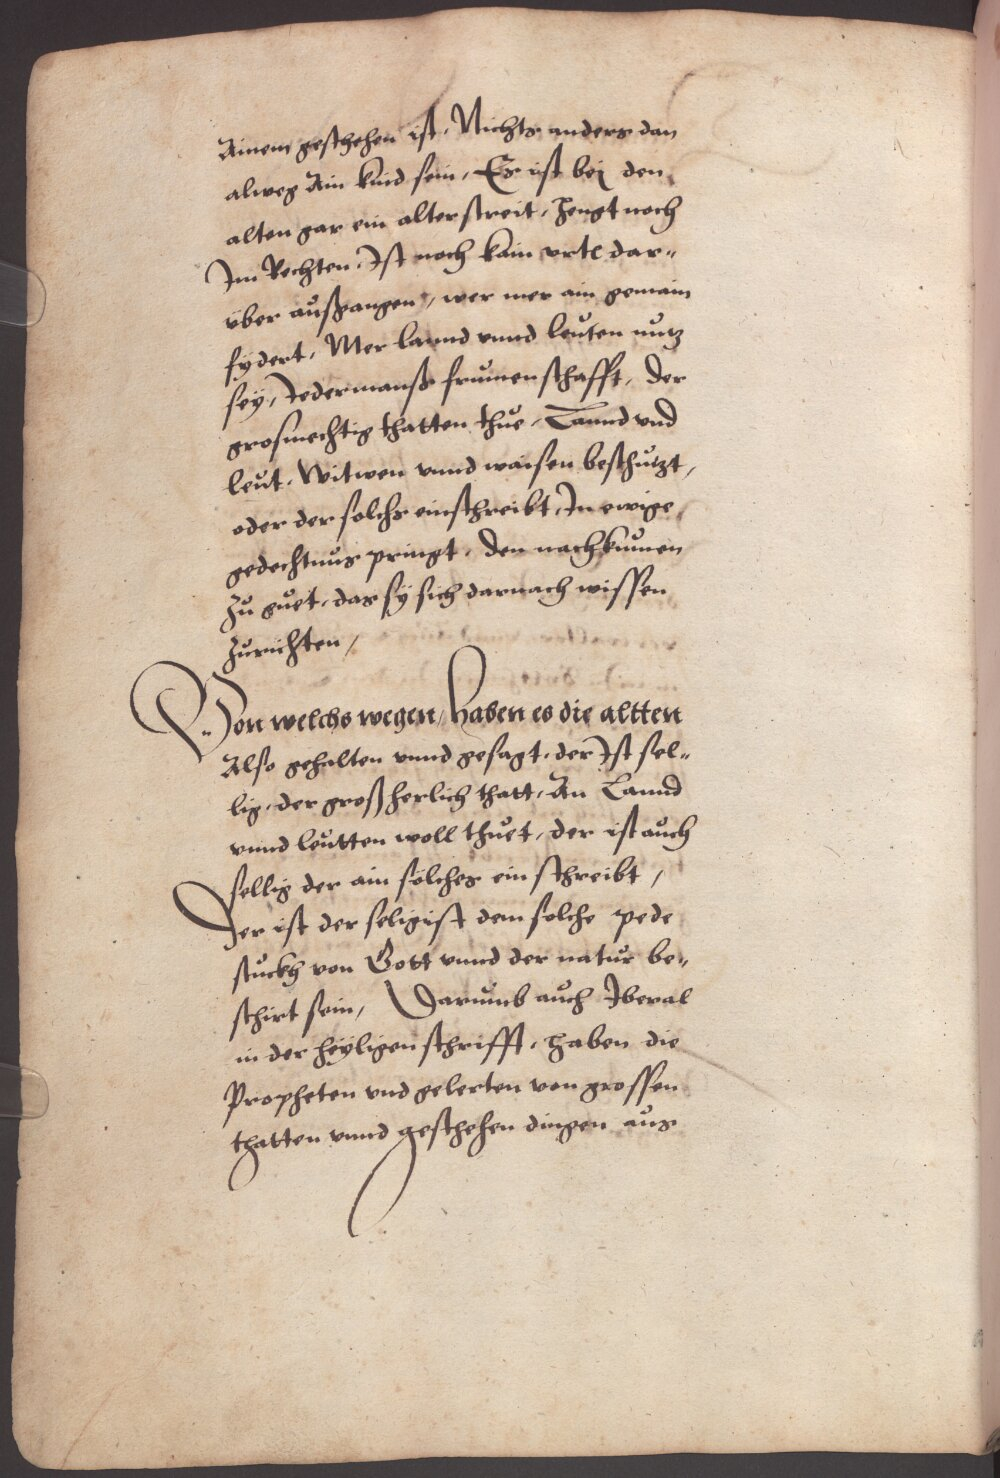 Ainem geschehen ist. Nichts anders dan
alweg Ain kind sein, Es ist bej den
alten gar ein alter streit, hengt noch
Im Rechten. Ist noch kain vrtl dar„
vber außgangen, wer mer ain gemain
fydert, Mer lannd vnnd leuten nutz
sey, Jedermanß frumen schafft, Der
grosmechtig thatten thue, Lannd vnd
leut. Witwen vnnd waisen beschutzt,
oder der solchs einschreibt, In ewige
gedechtnus pringt. den nachkumen
zu guet, das sy sich darnach wissen
zurichten,
Von welchs wegen, haben es die altten
Also gehalten vnnd gesagt. der Ist sel„
lig. der groß herlich thatt, An Lannd
vnnd leutten woll thuet, der ist auch
sellig der ain solches ein schreibt,
Der ist der seligist dem solche pede
stuckh von Gott vnnd der natur be„
schirt sein, Darumb auch Iberal
in der heyligen schrifft, haben die
Propheten vnd gelerten von grossen
thatten vnnd geschehen dingen aus